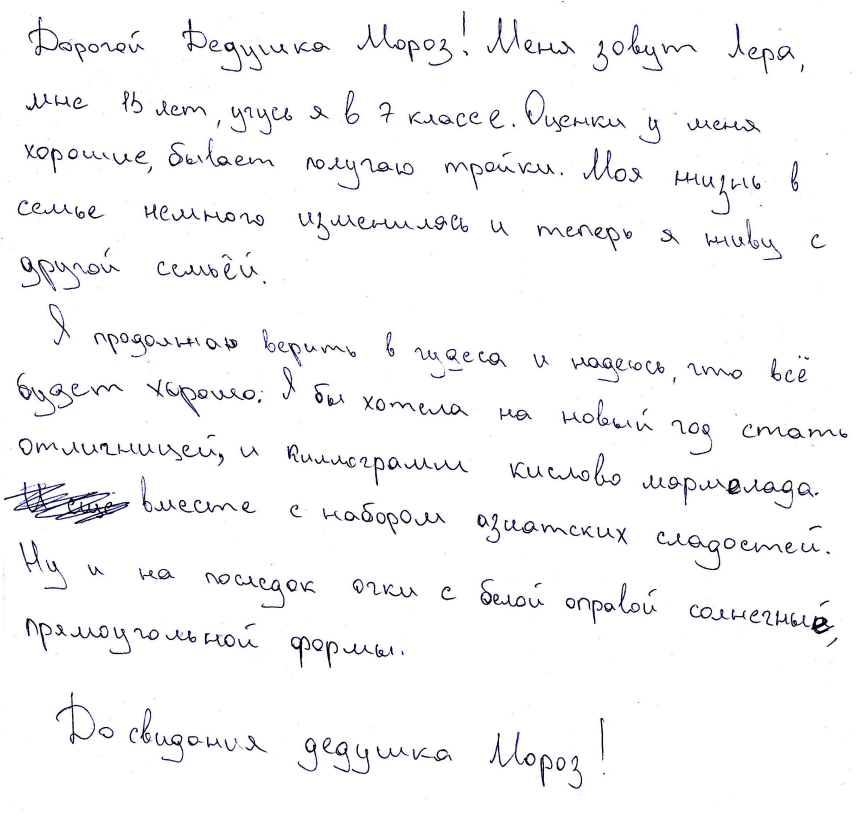 Дорогой Дедушка Мороз! Меня зовут Лера,
мне 15 лет, учусь я в 7 классе. Оценки у меня
хорошие, бывает получаю тройки. Моя жизнь в
семье немного изменилась и теперь я живу с
другой семьёй.
Я продолжаю верить в чудеса и надеюсь, что всё
будет хорошо. Я бы хотела на новый год стать
отличницей, и киллограмм кислово мармелада.
вместе с набором азиатских сладостей.
Ну и на последок очки с белой оправой солнечные,
прямоугольной формы.
До свидания дедушка Мороз!